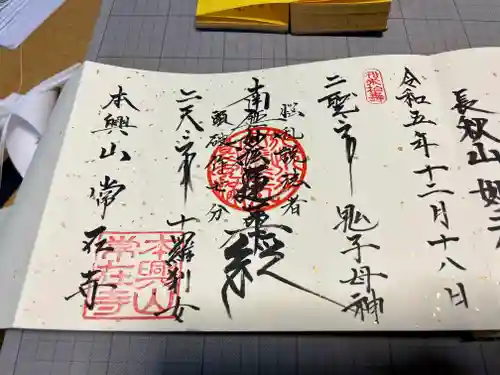 長秋山 妙
令和五年十二月十八日
鬼子母神
二聖二
南無妙法蓮華経
悩乱説法者
頭破作七分
二天二
十羅刹女
本興山常在寺
本興山
常在寺